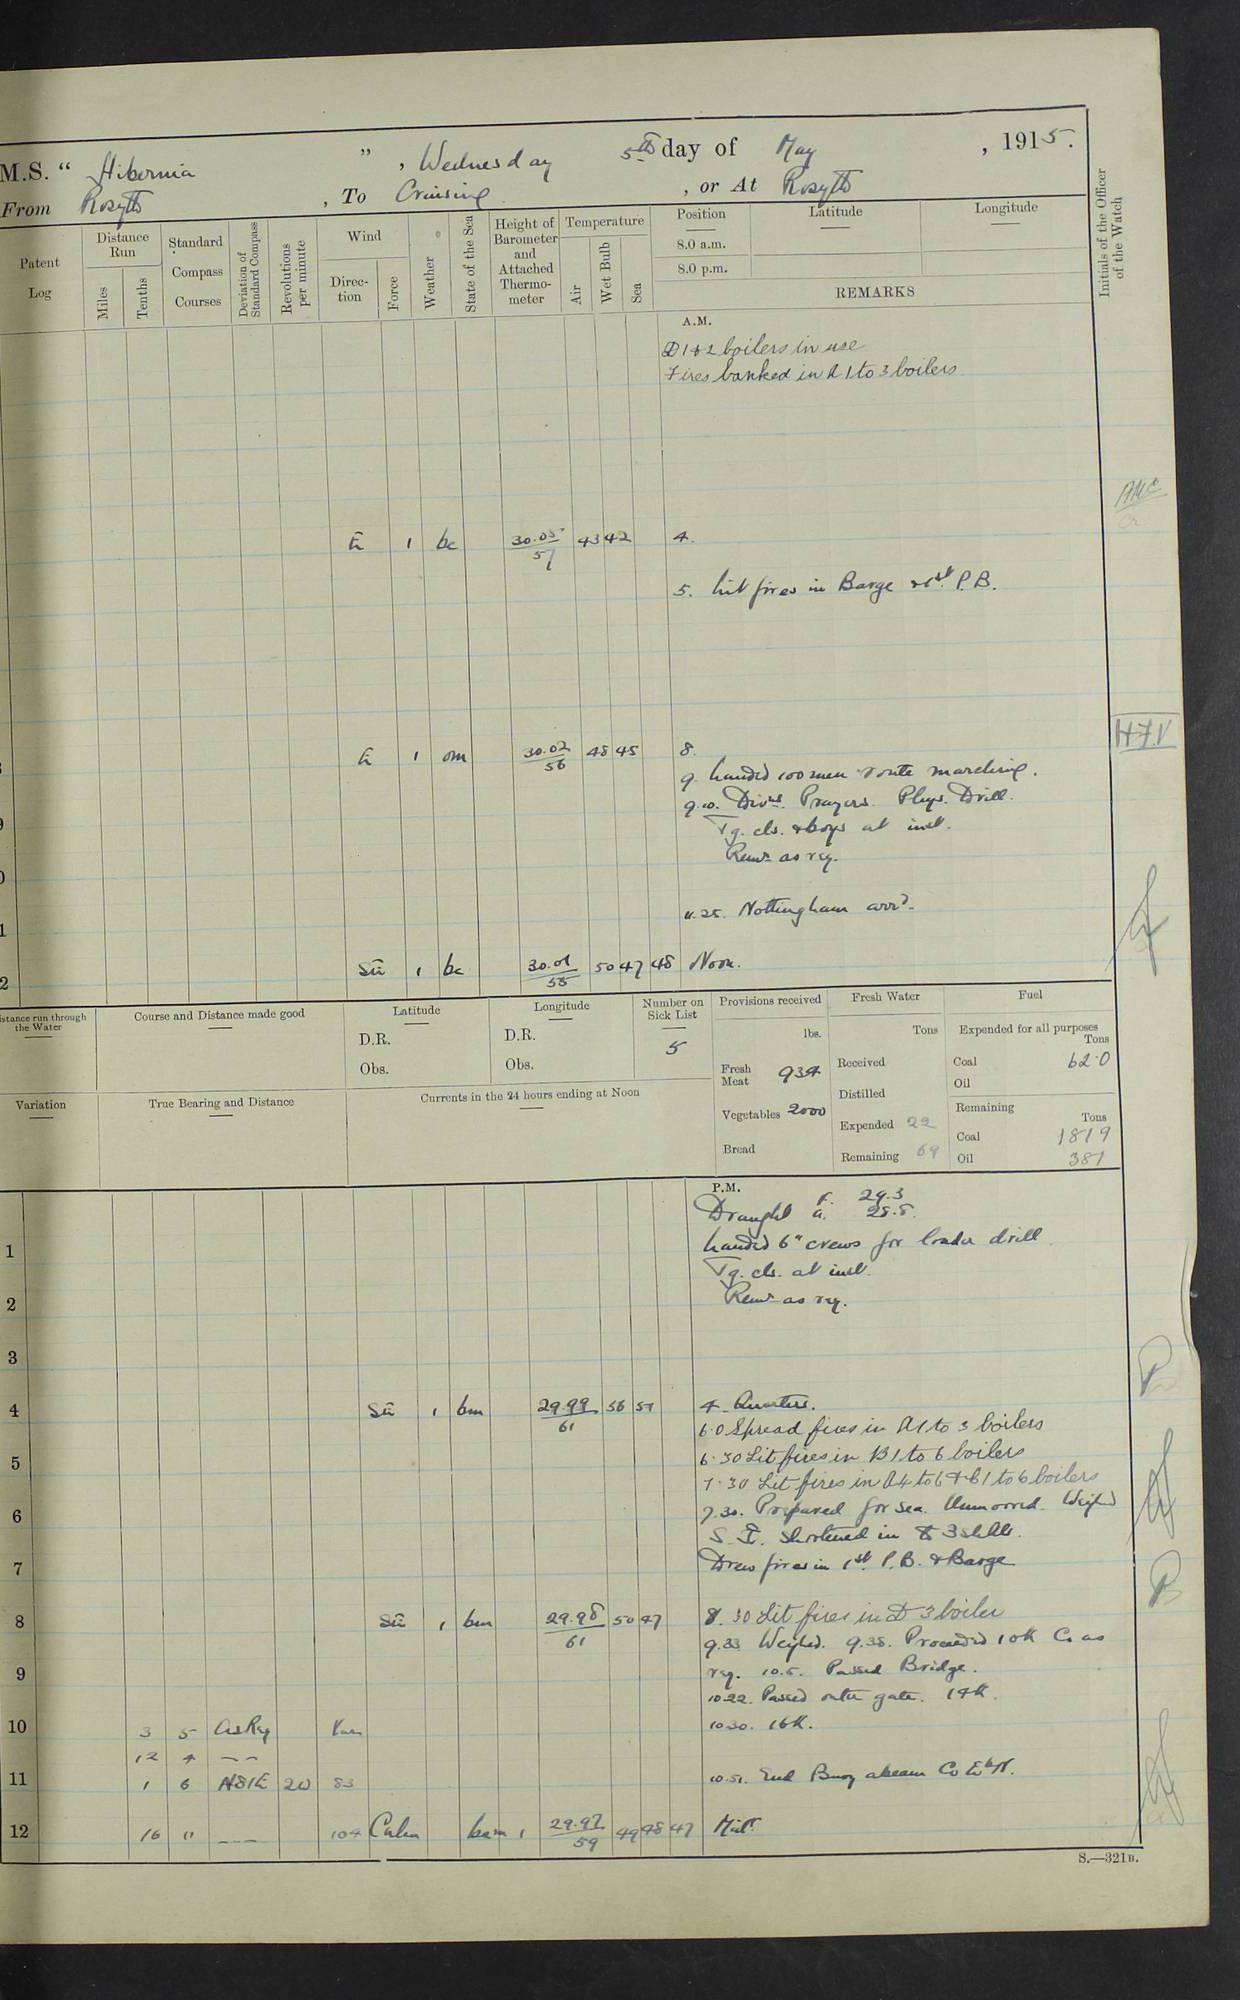 M.S. “ Hibernia ” , Wednesday 5th day of May , 1915.
From Rosyth , To Cruising , or At Rosyth
Patent Log
Distance Run
Miles
Tenths
Standard Compass Courses
Deviation of Standard Compass
Revolutions per minute
Wind
Direction
Force
Weather
State of the Sea
Height of Barometer and Attached Thermometer
Temperature
Air
Wet Bulb
Sea
Position
8.0 a.m.
8.0 p.m.
Latitude
Longitude
REMARKS
Initials of the Officer of the Watch
A.M.
D 1 & 2 boilers in use
Fires banked in A 1 to 3 boilers
E 1 bc 30.05/57 43 42 4.
5. Lit fires in Barge & 1st P.B.
E 1 om 30.02/56 48 45 8.
HFV
9. Landed 100 men route marching.
9.10. Divns. Prayers. Phys. Drill.
Tg. cls. & boys at inst.
Remr as req.
11.25. Nottingham arrd.
SE 1 bc 30.01/58 50 47 48 Noon.
Distance run through the Water
Course and Distance made good
Latitude
D.R.
Obs.
Longitude
D.R.
Obs.
Number on Sick List
5
Provisions received
lbs.
Fresh Meat 934
Vegetables 2000
Bread
Fresh Water
Tons
Received
Distilled
Expended 22
Remaining 69
Fuel
Expended for all purposes
Tons
Coal 62.0
Oil
Remaining
Tons
Coal 1819
Oil 381
Variation
True Bearing and Distance
Currents in the 24 hours ending at Noon
P.M.
Draught F. 29.3
A. 28.8.
1 Landed 6" crews for loader drill
Tg. cls. at inst.
2 Remr as req.
3
4 SE 1 bm 29.99/61 56 51 4. Quarters.
6.0 Spread fires in A 1 to 3 boilers
5 6.30 Lit fires in B 1 to 6 boilers
7.30 Lit fires in A 4 to 6 & C 1 to 6 boilers
6 7.30. Prepared for sea. Unmoored. Weighed
S. Shortened in to 3 shcls.
7 Drew fires in 1st P.B. & Barge
8 SE 1 bm 29.98/61 50 47 8.30 Lit fires in D 3 boiler
9.33 Weighed. 9.38. Proceeded 10K Co as
9 req. 10.5. Passed Bridge.
10.22. Passed outer gate. 14K.
10 3 5 As Req Var 10.30. 16K.
12 4 — —
11 1 6 N81E 20 83 10.51. End Buoy abeam Co EbN.
12 16 " — — 104 Calm 1 29.97/59 49 48 47 Midt
S.—321B.